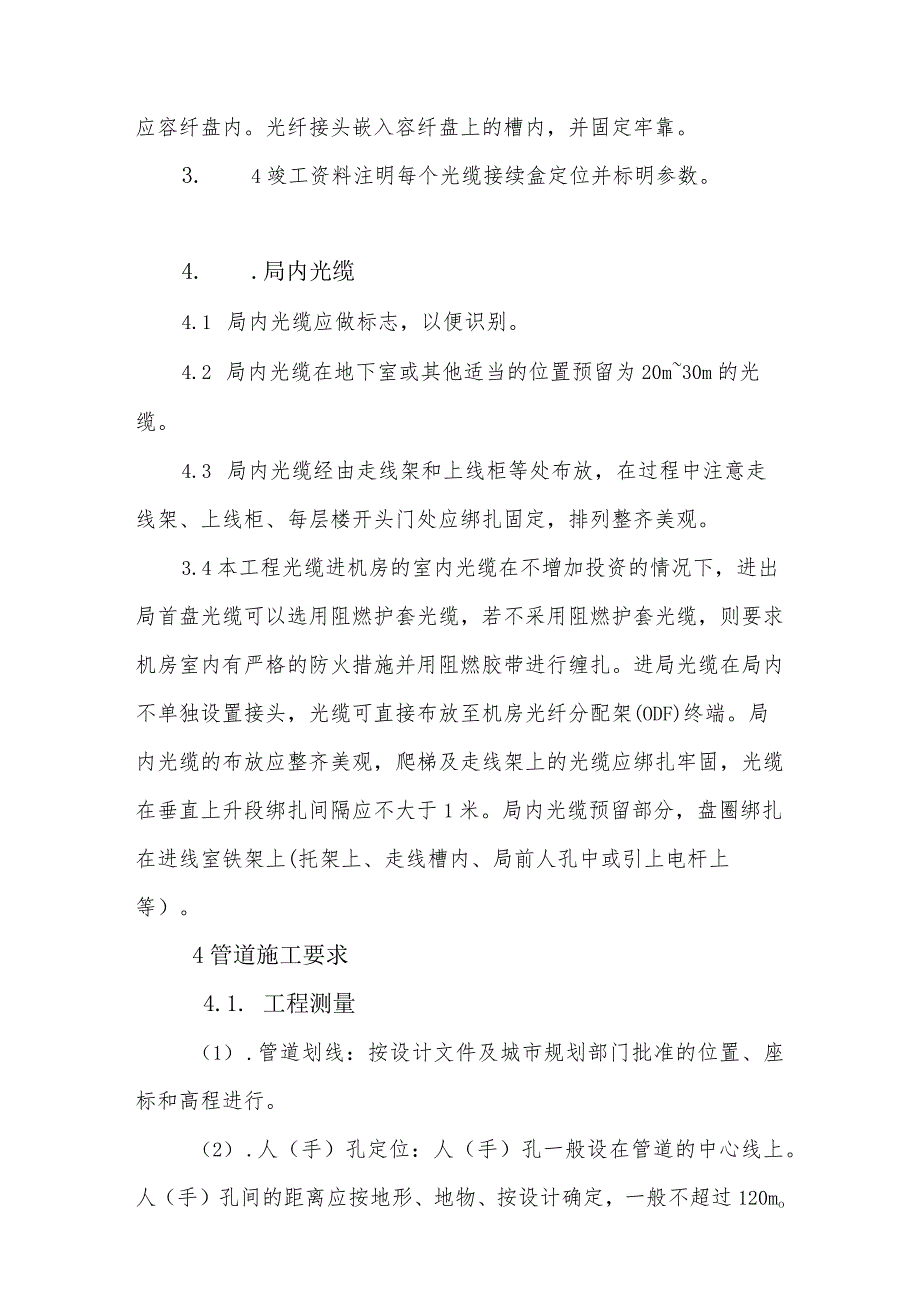 应容纤盘内。光纤接头嵌入容纤盘上的槽内，并固定牢靠。
3. 4竣工资料注明每个光缆接续盒定位并标明参数。
4. .局内光缆
4.1 局内光缆应做标志，以便识别。
4.2 局内光缆在地下室或其他适当的位置预留为20m~30m的光
缆。
4.3 局内光缆经由走线架和上线柜等处布放，在过程中注意走
线架、上线柜、每层楼开头门处应绑扎固定，排列整齐美观。
3.4本工程光缆进机房的室内光缆在不增加投资的情况下，进出
局首盘光缆可以选用阻燃护套光缆，若不采用阻燃护套光缆，则要求
机房室内有严格的防火措施并用阻燃胶带进行缠扎。进局光缆在局内
不单独设置接头，光缆可直接布放至机房光纤分配架(ODF)终端。局
内光缆的布放应整齐美观，爬梯及走线架上的光缆应绑扎牢固，光缆
在垂直上升段绑扎间隔应不大于1米。局内光缆预留部分，盘圈绑扎
在进线室铁架上(托架上、走线槽内、局前人孔中或引上电杆上
等）。
4管道施工要求
4.1. 工程测量
（1）.管道划线：按设计文件及城市规划部门批准的位置、座
标和高程进行。
（2）.人（手）孔定位：人（手）孔一般设在管道的中心线上。
人（手）孔间的距离应按地形、地物、按设计确定，一般不超过120m。